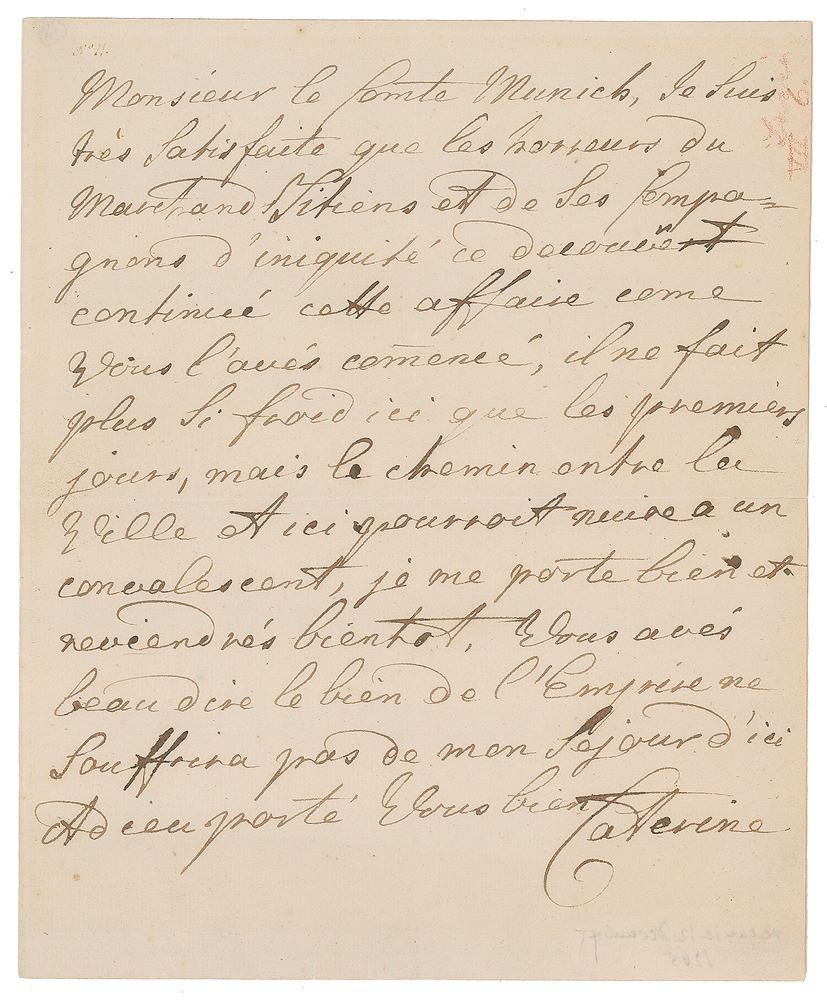 No 11.
Monsieur le Comte Munich, Je suis
très satisfaite que les horreurs du
Marchand Sitiens et de ses Compa=
gnons d'iniquité ce decouvert
continué cette affaire come
Vous l'avés comencé, il ne fait
plus si froid ici que les premiers
jours, mais le chemin entre la
Ville et ici pourroit nuire a un
convalescent, je me porte bien et
reviendrés bientot, Vous avés
beau dire le bien de l'Empire ne
souffrira pas de mon séjour d'ici
Adieu porté Vous bien
Caterine